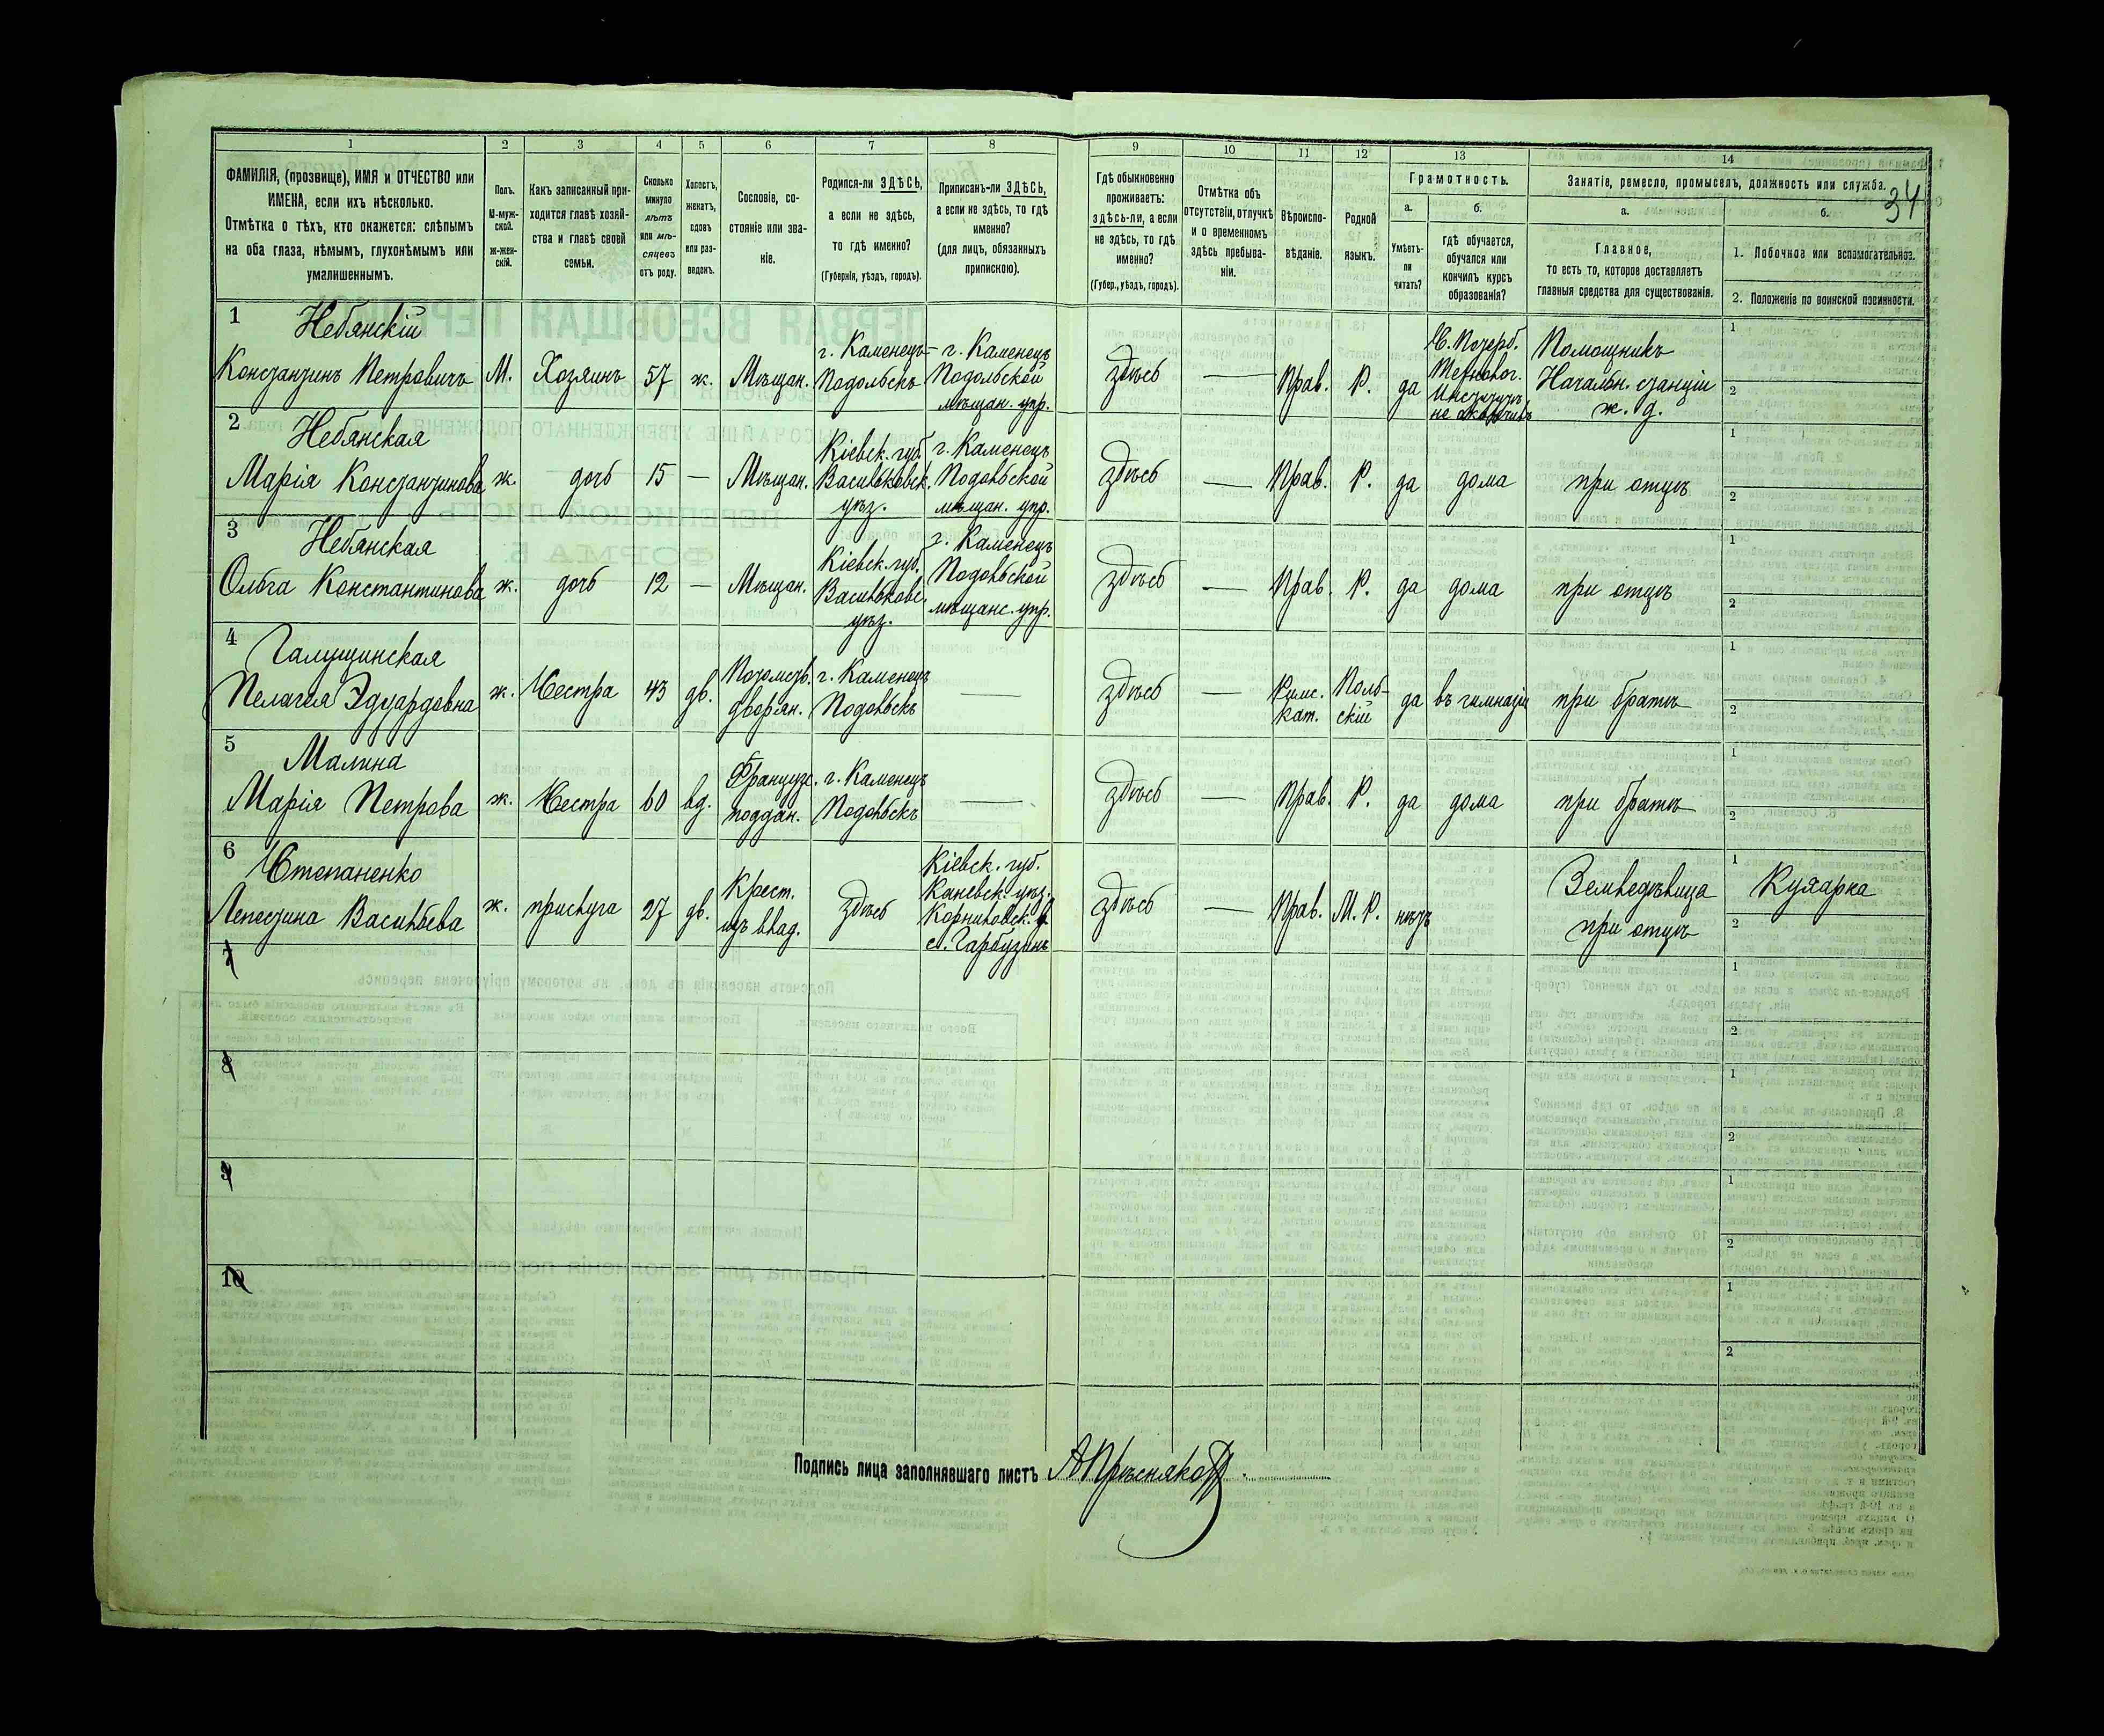 1 2 3 4 5 6 7 8 9 10 11 12 13 14
34
ФАМИЛІЯ, (прозвище), ИМЯ и ОТЧЕСТВО или
ИМЕНА, если ихъ нѣсколько.
Отмѣтка о тѣхъ, кто окажется: слѣпымъ
на оба глаза, нѣмымъ, глухонѣмымъ или
умалишеннымъ.
Полъ.
М-муж-
ской.
ж-жен-
скій.
Какъ записанный при-
ходится главѣ хозяй-
ства и главѣ своей
семьи.
Сколько
минуло
лѣтъ
или мѣ-
сяцевъ
отъ роду.
Холостъ,
женатъ,
вдовъ
или раз-
веденъ.
Сословіе, со-
стояніе или зва-
ніе.
Родился-ли ЗДѢСЬ,
а если не здѣсь,
то гдѣ именно?
(Губернія, уѣздъ, городъ).
Приписанъ-ли ЗДѢСЬ,
а если не здѣсь, то гдѣ
именно?
(для лицъ, обязанныхъ
припискою).
Гдѣ обыкновенно
проживаетъ:
здѣсь-ли, а если
не здѣсь, то гдѣ
именно?
(Губер., уѣздъ, городъ).
Отмѣтка объ
отсутствіи, отлучкѣ
и о временномъ
здѣсь пребыва-
ніи.
Вѣроиспо-
вѣданіе.
Родной
языкъ.
Грамотность.
а.
Умѣетъ-
ли
читать?
б.
гдѣ обучается,
обучался или
кончилъ курсъ
образованія?
Занятіе, ремесло, промыселъ, должность или служба.
а.
Главное,
то есть то, которое доставляетъ
главныя средства для существованія.
б.
1. Побочное или вспомогательное.
2. Положеніе по воинской повинности.
1 Небянскій
Константинъ Петровичъ
М.
Хозяинъ
57
ж.
Мѣщан.
г. Каменецъ-
Подольскъ
г. Каменецъ
Подольской
мѣщан. упр.
здѣсь
—
Прав.
Р.
да
С. Петерб.
Технолог.
Институтъ
не окончилъ
Помощникъ
Начальн. станціи
ж. д.
1
2
2 Небянская
Марія Константинова
ж.
дочь
15
—
Мѣщан.
Кіевск. губ.
Васильковск.
уѣз.
г. Каменецъ
Подольской
мѣщан. упр.
здѣсь
—
Прав.
Р.
да
дома
при отцѣ
1
2
3 Небянская
Ольга Константинова
ж.
дочь
12
—
Мѣщан.
Кіевск. губ.
Васильковс.
уѣз.
г. Каменецъ
Подольской
мѣщанс. упр.
здѣсь
—
Прав.
Р.
да
дома
при отцѣ
1
2
4 Галущинская
Пелагея Эдуардовна
ж.
Сестра
43
дв.
Потомств.
дворян.
г. Каменец
Подольскъ
—
здѣсь
—
Римс.
кат.
Поль-
скій
да
въ гимназіи
при братѣ
1
2
5 Малина
Марія Петрова
ж.
Сестра
60
вд.
Француз.
поддан.
г. Каменецъ
Подольскъ
—
здѣсь
—
Прав.
Р.
да
дома
при братѣ
1
2
6 Степаненко
Васильева
ж.
прислуга
27
дв.
Крест.
изъ влад.
здѣсь
Кіевск. губ.
Каневск. уѣз.
Корниловск. в
с. Гарбузинъ
здѣсь
—
Прав.
М. Р.
нѣтъ
Земледѣлица
при отцѣ
1 Кухарка
2
7
1
2
8
1
2
9
1
2
10
1
2
Подпись лица заполнявшаго листъ А Прѣсняковъ